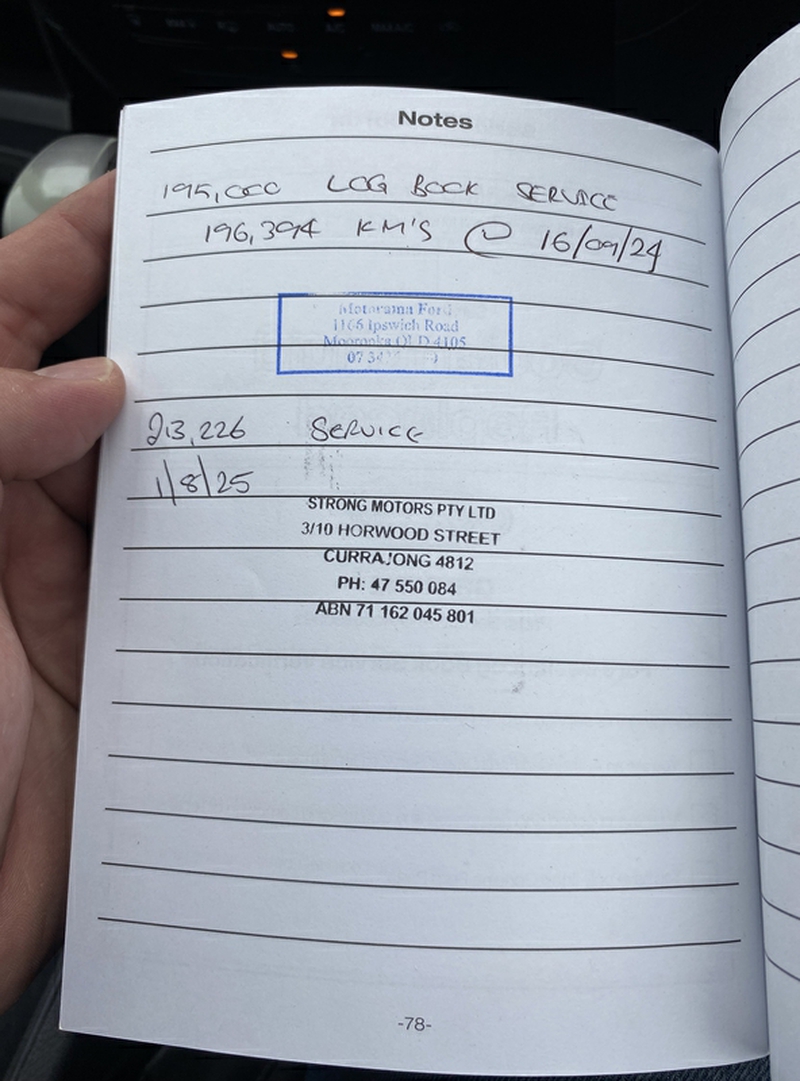 Notes
195,000 LOG BOOK SERVICE
196,394 KM'S @ 16/09/24
Motorama Ford
1166 Ipswich Road
Moorooka QLD 4105
07
213,226 SERVICE
1/8/25
STRONG MOTORS PTY LTD
3/10 HORWOOD STREET
CURRAJONG 4812
PH: 47 550 084
ABN 71 162 045 801
-78-